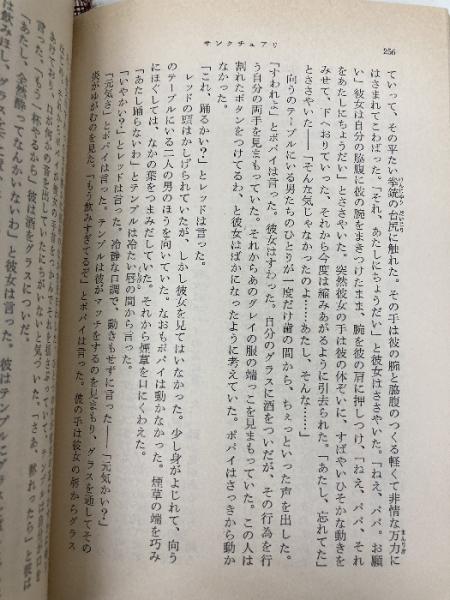 256
サンクチュアリ
ていって、その平たい拳銃の台尻に触れた。その手は彼の腕と脇腹のつくる軽くて非情な万力に
はさまれてこわばった。「それ、あたしにちょうだい」と彼女はささやいた。「ねえ、パパ。お願
い」彼女は自分の脇腹に彼の腕をまきつけたまま、腕を彼の肩に押しつけ、「ねえ、パパ、それ
をあたしにちょうだい」とささやいた。突然彼女の手は彼の体ぞいに、すばやいひそかな動きを
みせて、下へおりていった、それから今度は縮みあがるように引去られた。「あたし、忘れてた」
とささやいた――「そんな気じゃなかったのよ……あたし、そんな……」
向うのテーブルにいる男たちのひとりが一度だけ歯の間から、ちぇっといった声を出した。
「すわれよ」とポパイは言った。彼女はすわった。自分のグラスに酒をついだが、その行為を行
う自分の両手を見まもっていた。それからあのグレイの服の端っこを見まもっていた。この人は
割れたボタンをつけてるわ、と彼女はばかになったように考えていた。ポパイはさっきから動か
なかった。
「これ、踊るかい？」とレッドは言った。
レッドの頭はかしげられていたが、しかし彼女を見てはいなかった。少し身がよじれて、向う
のテーブルにいる二人の男のほうを向いていた。なおもポパイは動かなかった。煙草の端を巧み
にほぐしては、なかの葉をつまみだしていた。それから煙草を口にくわえた。
「あたし踊らないわ」とテンプルは冷たい唇の間から言った。
「いやかい？」とレッドは言った。冷静な口調で、動きもせずに言った――「元気かい？」
「元気さ」とポパイは言った。テンプルは彼がマッチをするのを見まもり、グラスを通してその
炎がゆがむのを見た。「もう飲みすぎてるぞ」とポパイは言った。彼の手は彼女の唇からグラス